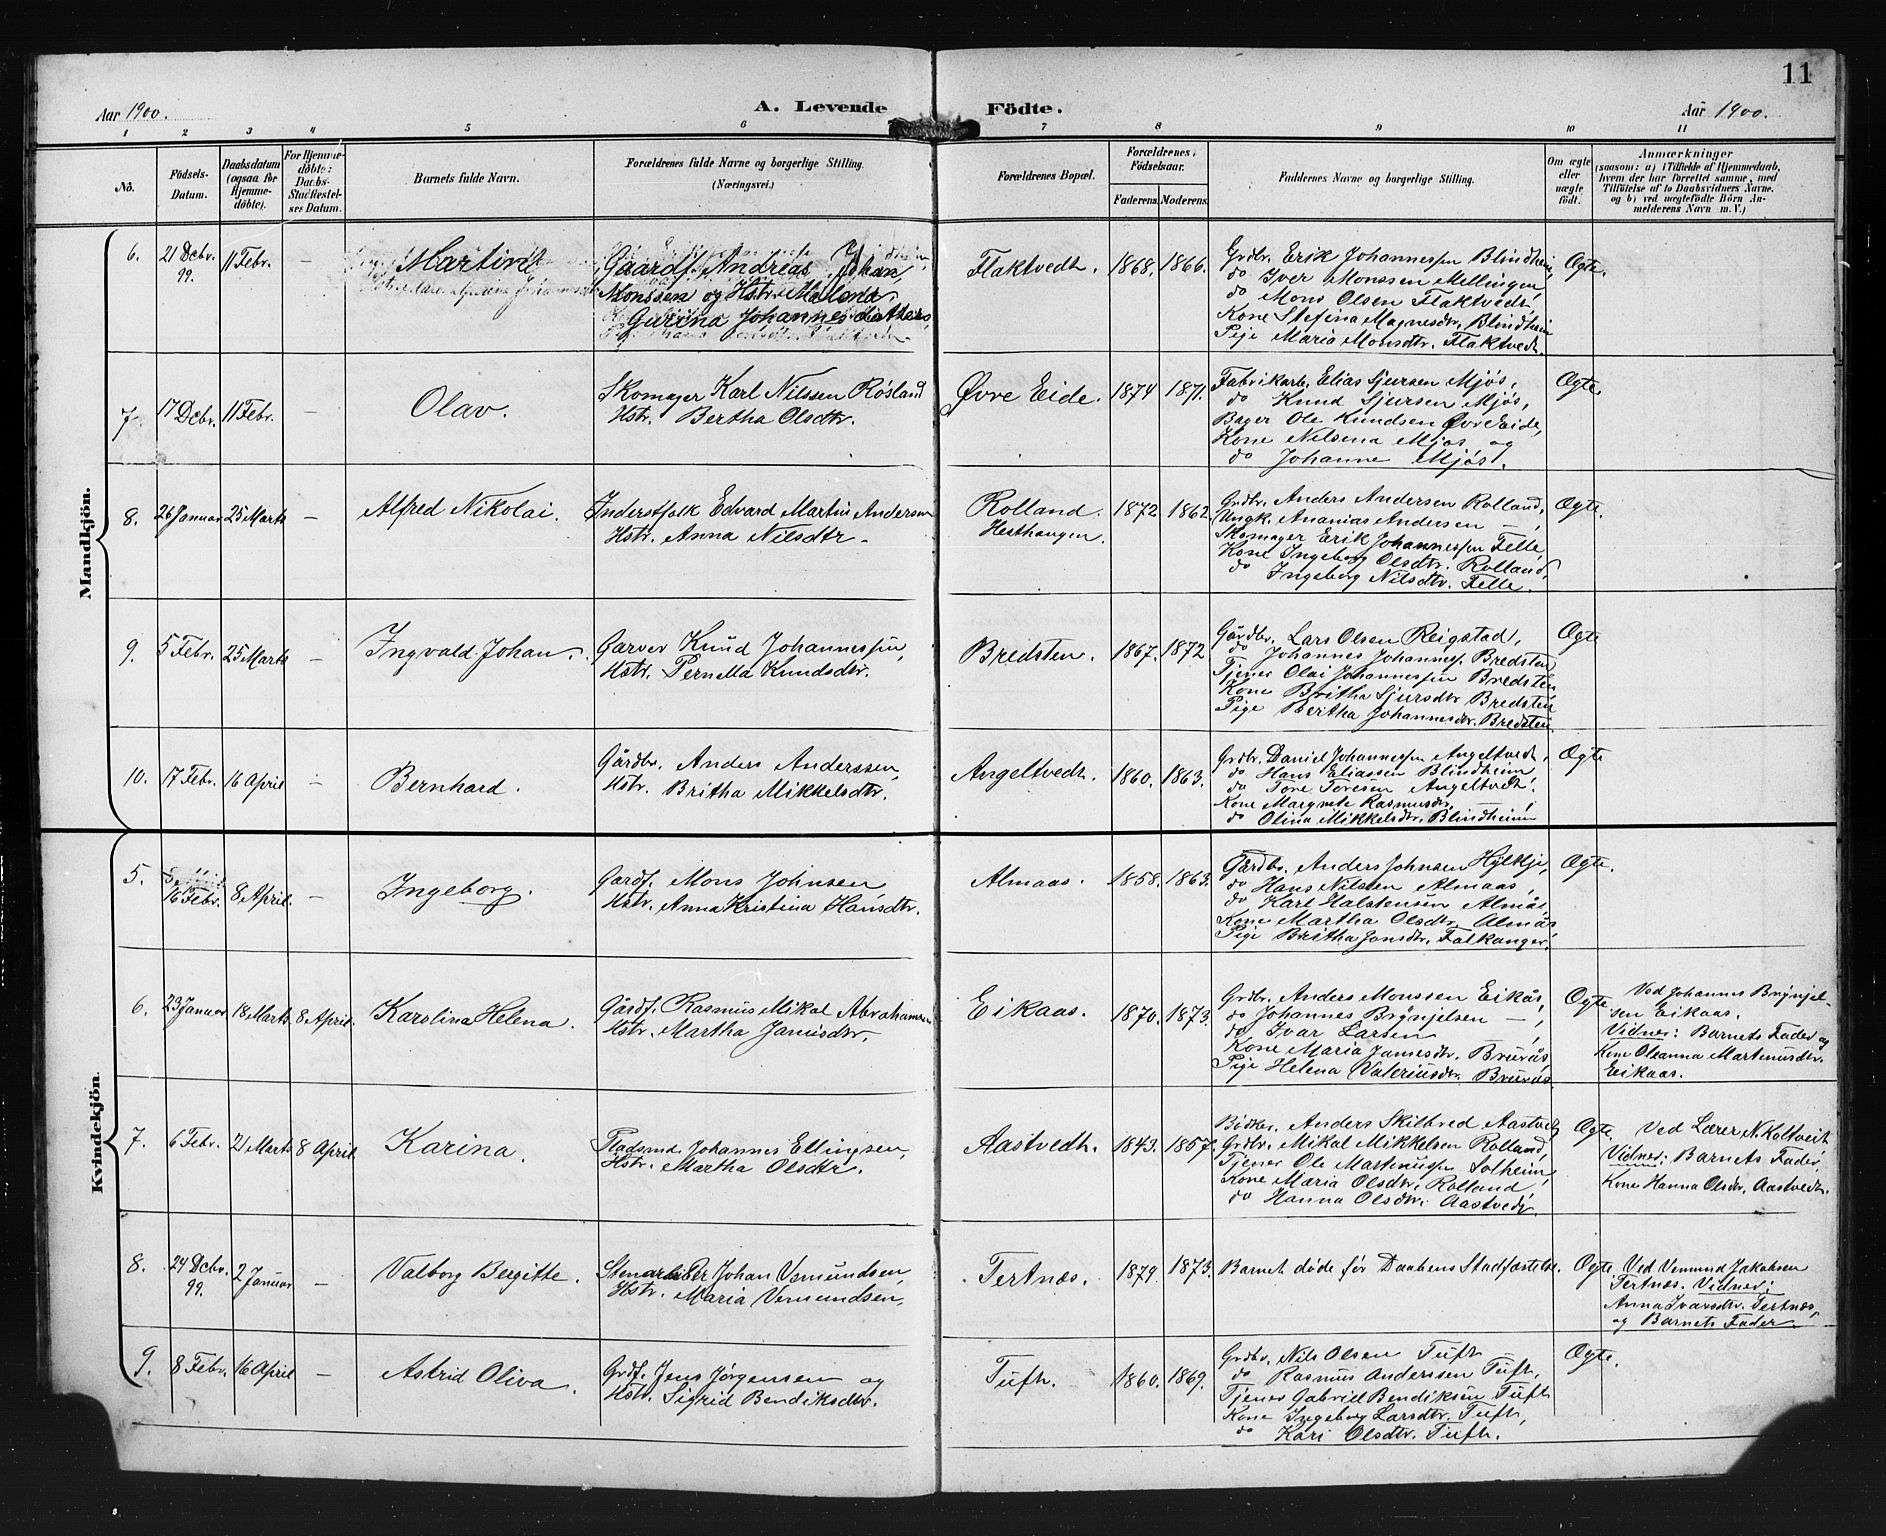 11
Aar 1900. A. Levende Födte. Aar 1900.
1 2 3 4 5 6 7 8 9 10 11
No. Födsels-Datum. Daabsdatum (ogsaa for Hjemmedöbte). For Hjemmedöbte: Daabs-Stadfæstelses Datum. Barnets fulde Navn. Forældrenes fulde Navne og borgerlige Stilling. (Næringsvei.) Forældrenes Bopæl. Forældrenes Födselsaar. Faderens. Moderens. Faddernes Navne og borgerlige Stilling. Om ægte eller uægte födt. Anmærkninger (saasom: a) i Tilfælde af Hjemmedaab, hvem der har forrettet samme, med Tilföielse af to Daabsvidners Navne. og b) ved uægtefödte Börn Anmelderens Navn m. V.)
Mandkjön.
6. 21 Dcbr. 99. 11 Febr. — Martin
Gaardf. Andreas Johan
Monssen og Hstr. Malena
Gurina Johannesdatter
Flaktvedt. 1868. 1866.
Grdbr. Erik Johannessen Blindheim,
do Iver Monssen Mellingen,
do Mons Olsen Flaktvedt,
Kone Stefina Magnesdtr. Blindheim
Pige Maria Monsdtr. Flaktvedt.
Ægte.
7. 17 Dcbr. 11 Febr. — Olav.
Skomager Karl Nilssen Røsland
Hstr. Bertha Olsdtr.
Øvre Eide. 1874 1871.
Fabrikarb. Elias Sjursen Mjøs,
do Knud Sjursen Mjøs,
Bager Ole Knudsen Øvre Eide,
Kone Nilsena Mjøs og
do Johanne Mjøs.
Ægte.
8. 26 Januar 25 Marts — Alfred Nikolai.
Inderstfolk Edvard Martin Andersen
Hstr. Anna Nilsdtr.
Rolland Hesthaugen. 1872 1862.
Grdbr. Anders Andersen Rolland,
Ungk. Ananias Andersen — ,
Skomager Erik Johannessen Telle,
Kone Ingeborg Olsdtr. Rolland,
do Ingeborg Nilsdtr. Telle.
Ægte.
9. 5 Febr. 25 Marts — Ingvald Johan.
Garver Knud Johannessen,
Hstr. Pernella Knudsdtr.
Bredsten. 1867. 1872
Gårdbr. Lars Olsen Reigstad,
do Johannes Johanness. Bredsten
Tjener Olai Johannessen Bredsten
Kone Britha Sjursdtr Bredsten
Pige Bertha Johannesdtr. Bredsten
Ægte
10. 17 Febr. 16 April — Bernhard.
Gårdbr. Anders Anderssen,
Hstr. Britha Mikkelsdtr.
Angeltvedt. 1860. 1863.
Grdbr. Daniel Johannessen Angeltvedt,
do Hans Eliassen Blindheim,
do Tore Toresen Angeltvedt.
Kone Margrete Rasmusdtr. — ,
do Olina Mikkelsdtr. Blindheim
Ægte
Kvindekjön.
5. 16 Febr. 8 April. — Ingeborg.
Gardf. Mons Johnsen
Hstr. Anna Kristina Hansdtr.
Almaas. 1858. 1863.
Gardbr. Anders Johnsen Hylkje,
do Hans Nilssen Almaas,
do Karl Halstensen Almås
Kone Martha Olsdtr. Almås
Pige Britha Jonsdtr. Falkanger.
Ægte.
6. 23 Januar 18 Marts 8 April. Karolina Helena.
Gårdf. Rasmus Mikal Abrahamsen
Hstr. Martha Jamisdtr.
Eikaas. 1870. 1873.
Grdbr. Anders Monssen Eikås,
do Johannes Brynjelsen — ,
do Ivar Larsen
Kone Maria Jamesdtr. Bruraas,
Pige Helena Valeriusdtr. Bruraas.
Ægte
Ved Johannes Brynjel-
sen Eikaas.
Vidner: Barnets Fader og
Kone Oleanna Martinusdtr.
Eikaas.
7. 6 Febr. 21 Marts 8 April Karina.
Pladsmd. Johannes Ellingsen,
Hstr. Martha Olsdtr.
Aastvedt. 1843. 1857.
Bødker. Anders Skilbred Aastvedt
Grdbr. Mikal Mikkelsen Rolland,
Tjener Ole Martinussen Solheim,
Kone Maria Olsdtr. Rolland
do Hanna Olsdtr. Aastvedt.
Ægte.
Ved Lærer N. Koltveit
Vidner: Barnets Fader,
Kone Hanna Olsdtr. Aastvedt.
8. 24 Dcbr. 99. 2 Januar — Valborg Bergitte.
Stenarbeider Johan Vemundsen,
Hstr. Maria Vemundsen,
Tertnæs. 1879. 1873.
Barnet døde før Daabens Stadfæstelse.
Ægte.
Ved Vemund Jakobsen
Tertnæs. Vidner:
Anna Ivarsdtr. Tertnæs,
og Barnets Fader.
9. 8 Febr. 16 April — Astrid Oliva.
Grdf. Jens Jørgensen og
Hstr. Sigrid Bendiksdtr.
Tuft. 1860. 1869.
Grdbr. Nils Olsen Tuft
do Rasmus Anderssen Tuft,
Tjener Gabriel Bendiksen Tuft
Kone Ingeborg Larsdtr. Tuft,
do Kari Olsdtr. Tuft.
Ægte.